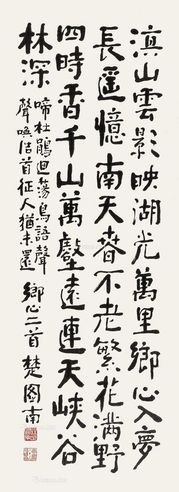 滇山雲影映湖光萬里鄉心入夢
長遥憶南天春不老繁花滿野
四時香千山萬壑遠連天峽谷
林深
啼杜鵑迴蕩鳥語聲
聲喚首征人猶未還
鄉心二首 楚圖南